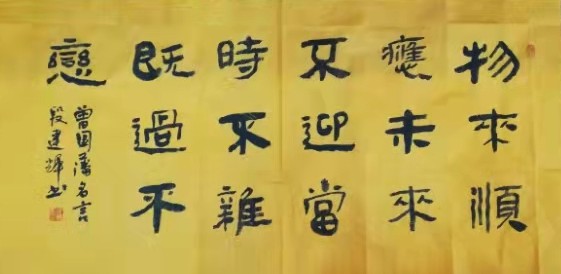 物來順
應未來
不迎當
時不雜
既過不
戀
曾国藩名言
段建輝书